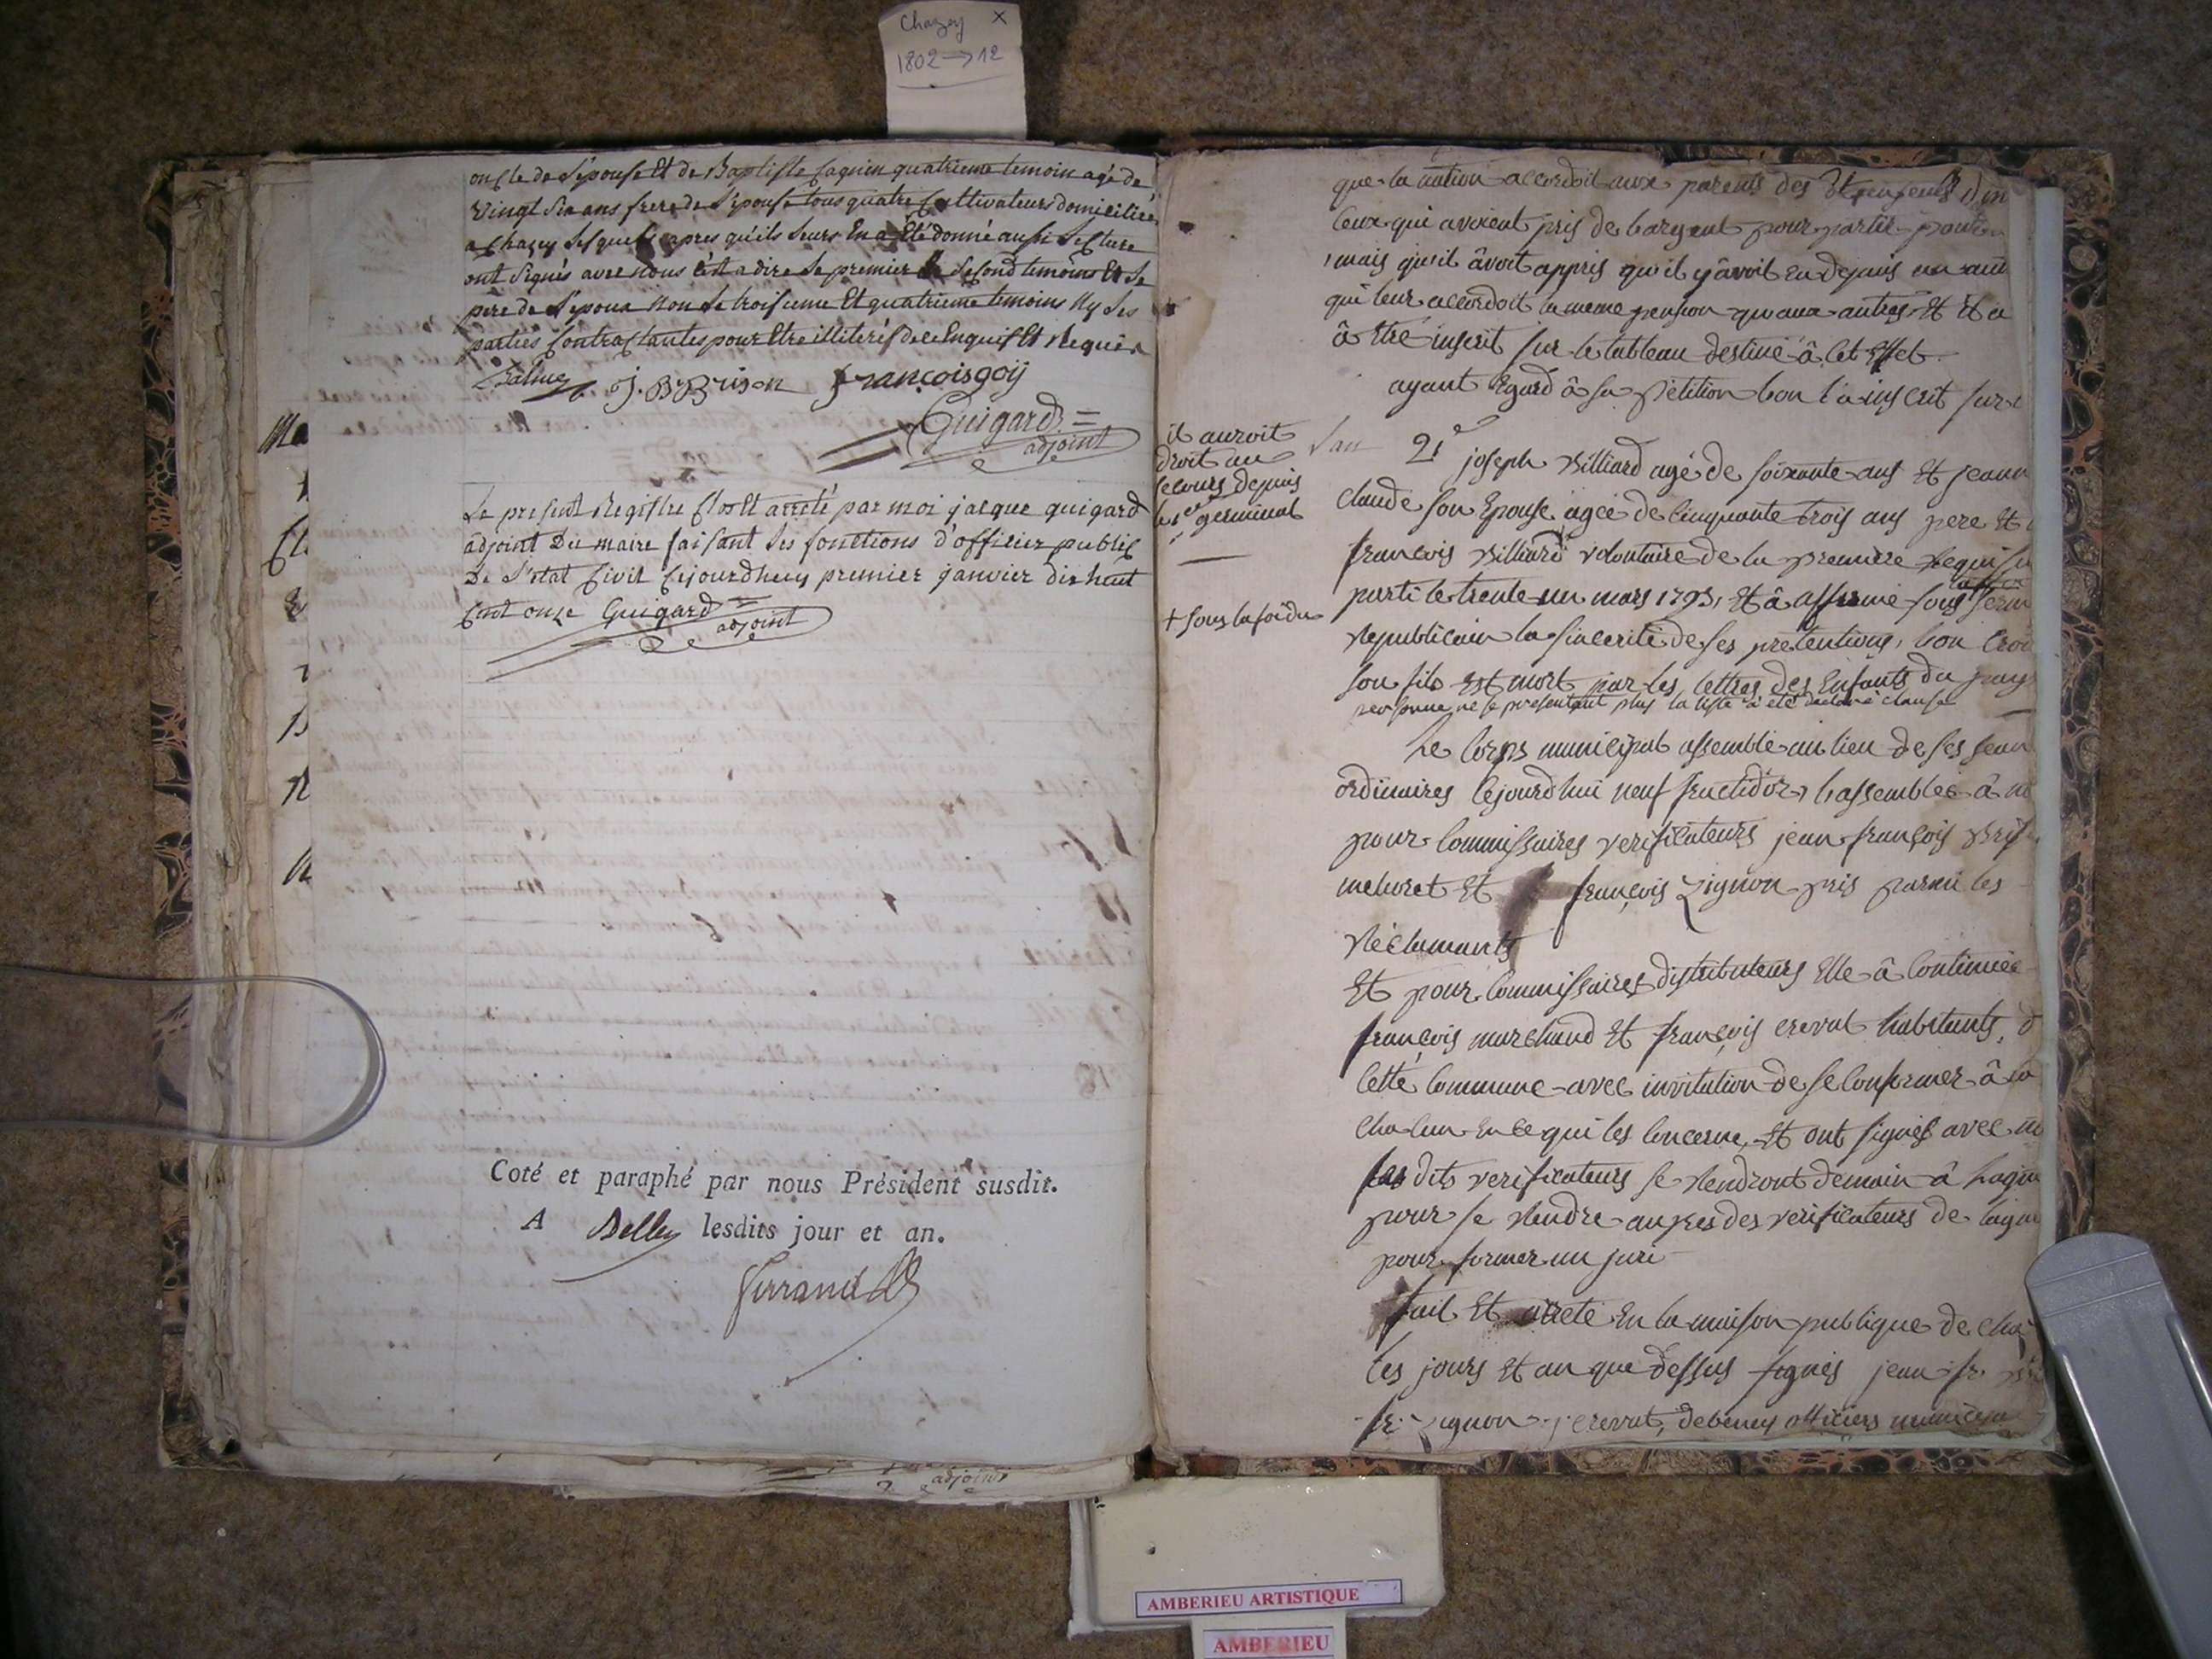 Chazey X
1802 → 12
oncle de L'épouse Et de Baptiste Cagnin quatrieme temoin agé de
vingt six ans frere de L'epouse tous quatre Cultivateurs domiciliés
a Chazey Lesquels apres qu'ils Leurs En a Eté donné aussi Lecture
ont Signés avec nous C'est a dire Le premier Le Second temoins Et Le
père de L'epoux non Le troisieme Et quatrieme temoins Ny Les
parties Contractantes pour Etre illiterés de ce Enquis Et Requis
J. B Brison françois goij
Guigard
adjoint
Le present Registre Clos Et arreté par moi jacque guigard
adjoint Du maire faisant Les fonctions d'officier public
De L'etat Civil Cejourdhuy premier janvier dix huit
Cent onze Guigard
adjoint
Coté et paraphé par nous Président susdit.
A Belley lesdits jour et an.
adjoint
que la nation accordoit aux parents des
Ceux qui avoient pris de l'argent pour partir
mais qu'il âvoit appris qu'il y âvoit En depuis un
qui leur accordoit la meme pension qu'aux autres Et
â Etre inscrit sur le tableau destiné â Cet Effet
ayant Egard â sa petition l'on l'a inscrit sur
il auroit
droit au
secours depuis
le 1er germinal
21e joseph Billiard agé de soixante ans Et jeann
Claude son Epouse agée de Cinquante trois ans pere Et
françois Billiard volontaire de la premiere Requisi
parti le trente un mars 1793, Et â affirmé sous
+ sous la foi du
Republicain la sincerité de ses pretentions, l'on Croi
son fils Est mort par les lettres des Enfants du pays
personne ne se presentant plus la liste a été declaré clause
Le Corps municipal assemblé au lieu de ses sean
ordinaires Cejourd'hui neuf fructidor, l'assemblée â
pour Commissaires verificateurs jean françois
Et françois Zignon pris parmi les
Réclamants
Et pour Commissaires distributeurs Elle â Continuée
françois marchand Et françois crevat habitants, d
Cette Commune avec invitation de se Conformer â
Chacun En Ce qui les Concerne, Et ont signés avec
dits verificateurs se Rendront demain â Lagni
pour se Rendre aupres des verificateurs de lagni
pour former un juri
fait Et arreté En la maison publique de Cha
les jours Et an que dessus signés jean fr.
fr. Zignon j crevat, debeney officiers municipa
AMBERIEU ARTISTIQUE
AMBERIEU